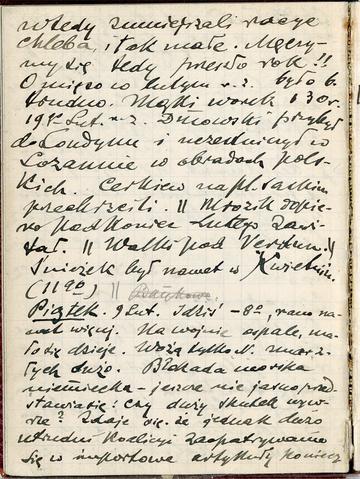 wtedy zmniejszali racye
chleba, i tak małe. Męczy-
my się tedy przeszło rok!!
O mięso w lutym r. z. było b.
trudno. Mąki worek 130 r.
19 1/2 Lut. r. z. Dmowski przybył
do Londynu i uczestniczył w
Lozannie w obradach pols-
kich. Cerkiew na pl. Saskim
przechrzcili. || Mrozik dopie-
ro pod koniec Lutego zawi-
tał. || Walki pod Verdun. ||
Śnieżek był nawet w Kwietniu.
(11 90) ||
Piątek. 9 Lut. Idziś –80, rano na-
wet więcej. Na wojnie ospale, ma-
ło się dzieje. Wożą tylko N. zmarz-
łych dużo. Blokada morska
niemiecka – jeszcze nie jasno przed-
stawia się: czy duży skutek wywr-
rze? Zdaje się, że jednak dużo
utrudni Koalicyi zaopatrywanie
się w importowe artykuły koniecz